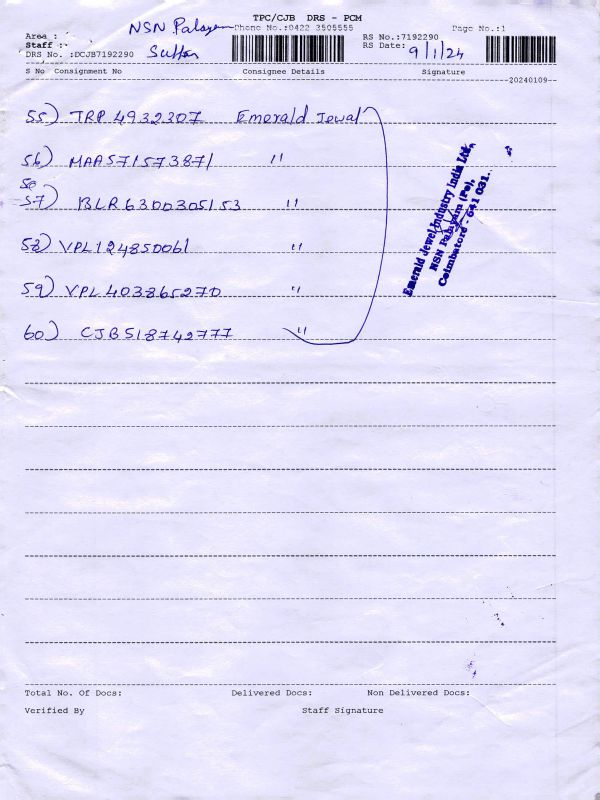 TPC/CJB DRS - PCM
NSN Palayam Phone No.:0422 3505555 Page No.:1
Area :
RS No.:7192290
Staff :
RS Date: 9/1/24
DRS No. :DCJB7192290
S No Consignment No Consignee Details Signature
20240109
55) TRP 4932307 Emerald Jewal
56) MAA571573871 "
57) BLR6300305153 "
58) VPL124850061 "
59) VPL403865270 "
60) CJB518742777 "
Emerald Jewel Industry India Ltd.,
NSN Palayam (Po),
Coimbatore - 641 031.
Total No. Of Docs: Delivered Docs: Non Delivered Docs:
Verified By Staff Signature